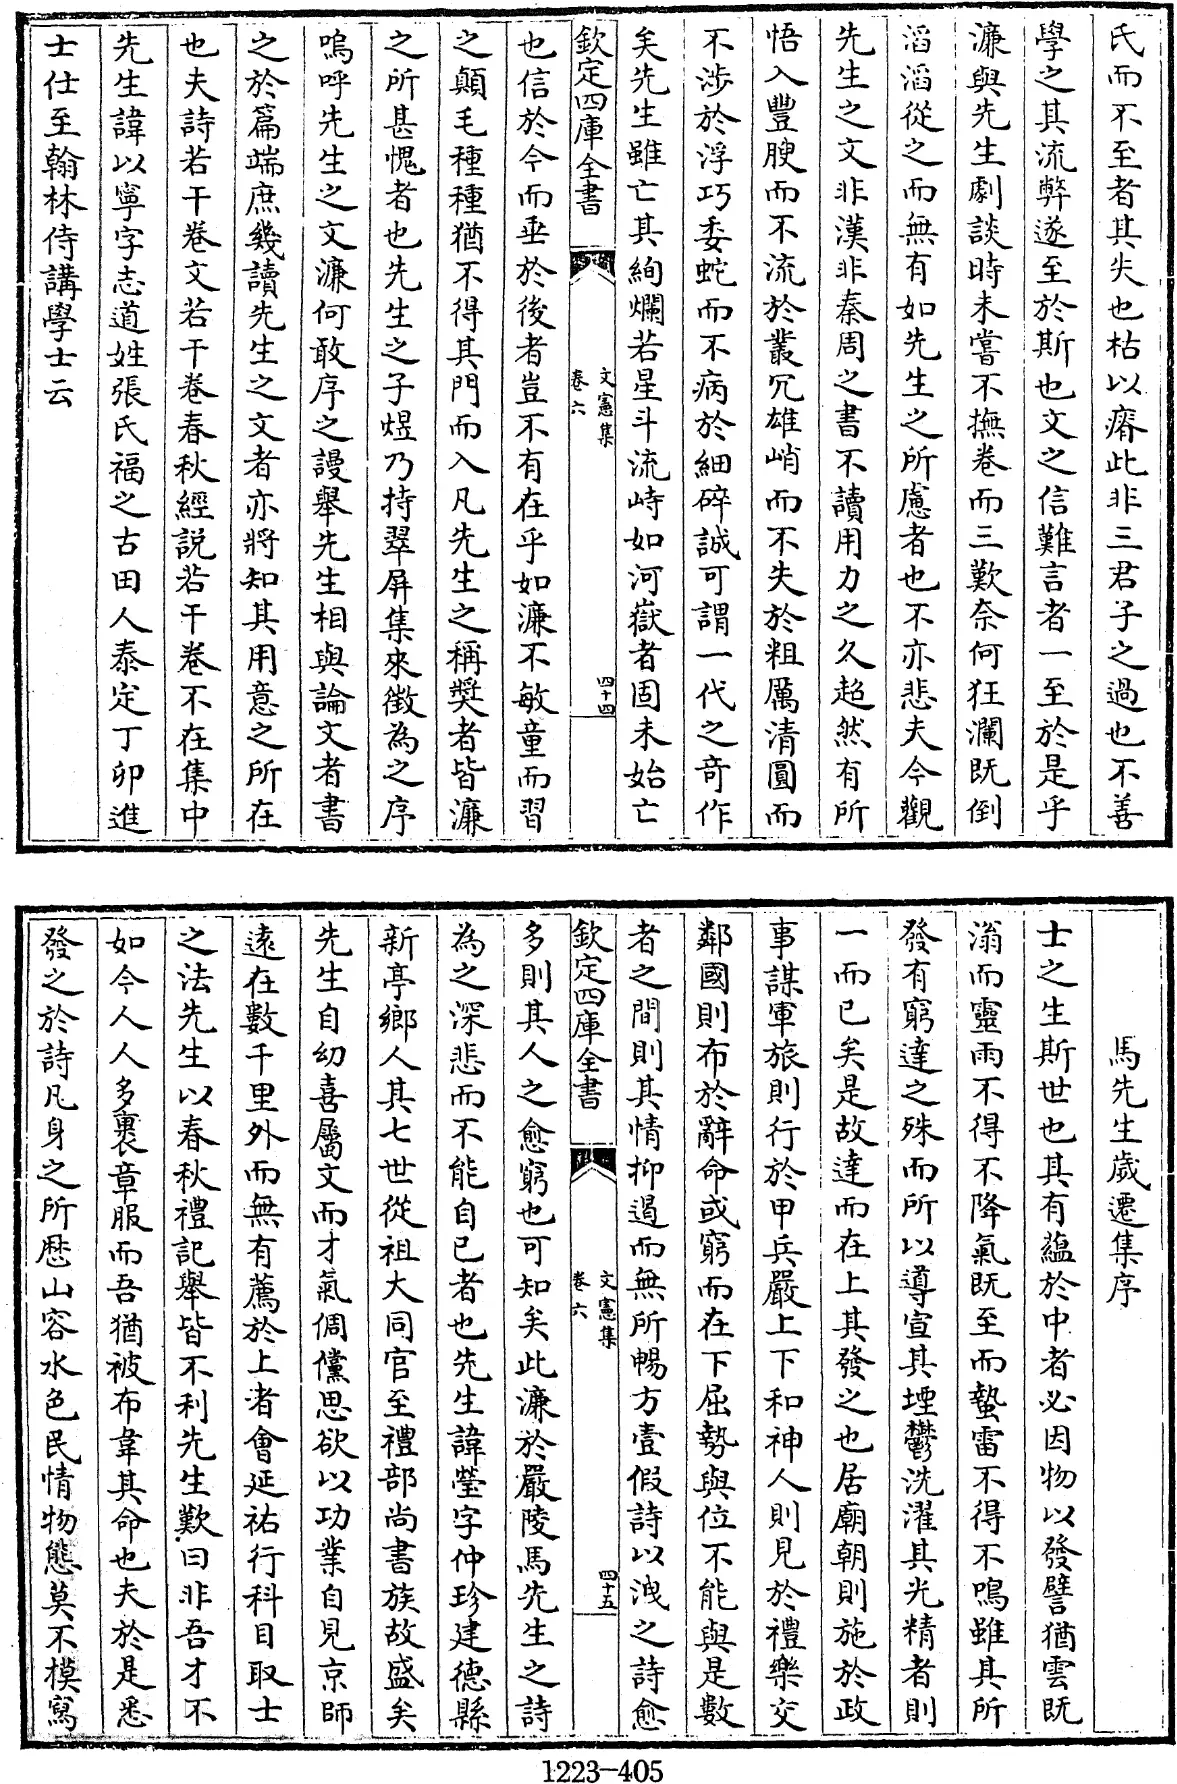 氏而不至者其失也枯以瘠此非三君子之過也不善
學之其流弊遂至於斯也文之信難言者一至於是乎
濂與先生劇談時未嘗不撫卷而三歎奈何狂瀾既倒
滔滔從之而無有如先生之所慮者也不亦悲夫今觀
先生之文非漢非秦周之書不讀用力之久超然有所
悟入豐腴而不流於叢冗雄峭而不失於粗厲清圓而
不涉於浮巧委蛇而不病於細碎誠可謂一代之奇作
矣先生雖亡其絢爛若星斗流峙如河嶽者固未始亡
欽定四庫全書
文憲集
卷六
四十四
也信於今而垂於後者豈不有在乎如濂不敏童而習
之顛毛種種猶不得其門而入凡先生之稱奬者皆濂
之所甚愧者也先生之子煜乃持翠屏集來徵為之序
嗚呼先生之文濂何敢序之謾舉先生相與論文者書
之於篇端庶幾讀先生之文者亦將知其用意之所在
也夫詩若干卷文若干卷春秋經説若干卷不在集中
先生諱以寧字志道姓張氏福之古田人泰定丁卯進
士仕至翰林侍講學士云
馬先生歲遷集序
士之生斯世也其有蘊於中者必因物以發譬猶雲既
滃而靈雨不得不降氣既至而蟄雷不得不鳴雖其所
發有窮達之殊而所以導宣其堙鬱洗濯其光精者則
一而已矣是故達而在上其發之也居廟朝則施於政
事謀軍旅則行於甲兵嚴上下和神人則見於禮樂交
鄰國則布於辭命或窮而在下屈勢與位不能與是數
者之間則其情抑遏而無所暢方壹假詩以洩之詩愈
欽定四庫全書
文憲集
卷六
四十五
多則其人之愈窮也可知矣此濂於嚴陵馬先生之詩
為之深悲而不能自已者也先生諱瑩字仲珍建德縣
新亭鄉人其七世從祖大同官至禮部尚書族故盛矣
先生自幼喜屬文而才氣倜儻思欲以功業自見京師
遠在數千里外而無有薦於上者會延祐行科目取士
之法先生以春秋禮記舉皆不利先生歎曰非吾才不
如今人人多裹章服而吾猶被布韋其命也夫於是悉
發之於詩凡身之所歷山容水色民情物態莫不模寫
1223-405